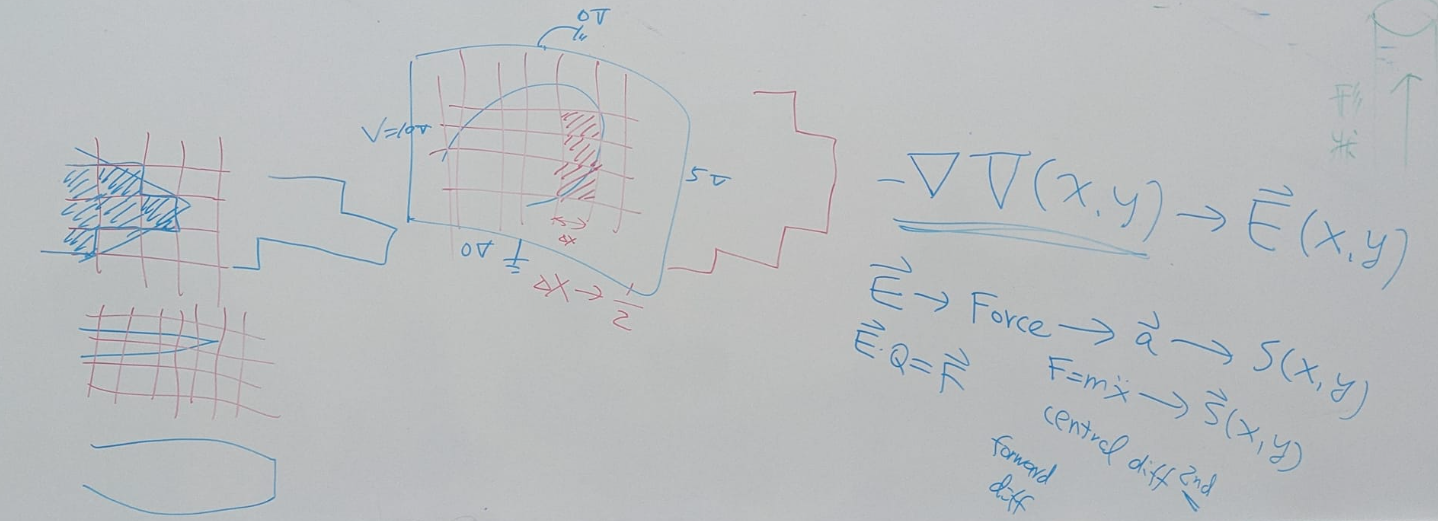 0V
V=10V
5V
0V
Δx
Δx → 1/2
-∇V(x,y) → E⃗(x,y)
E⃗ → Force → a⃗ → S(x,y)
E⃗·Q=F⃗
F=mẍ → S⃗(x,y)
central diff 2nd
forward
diff
形
状